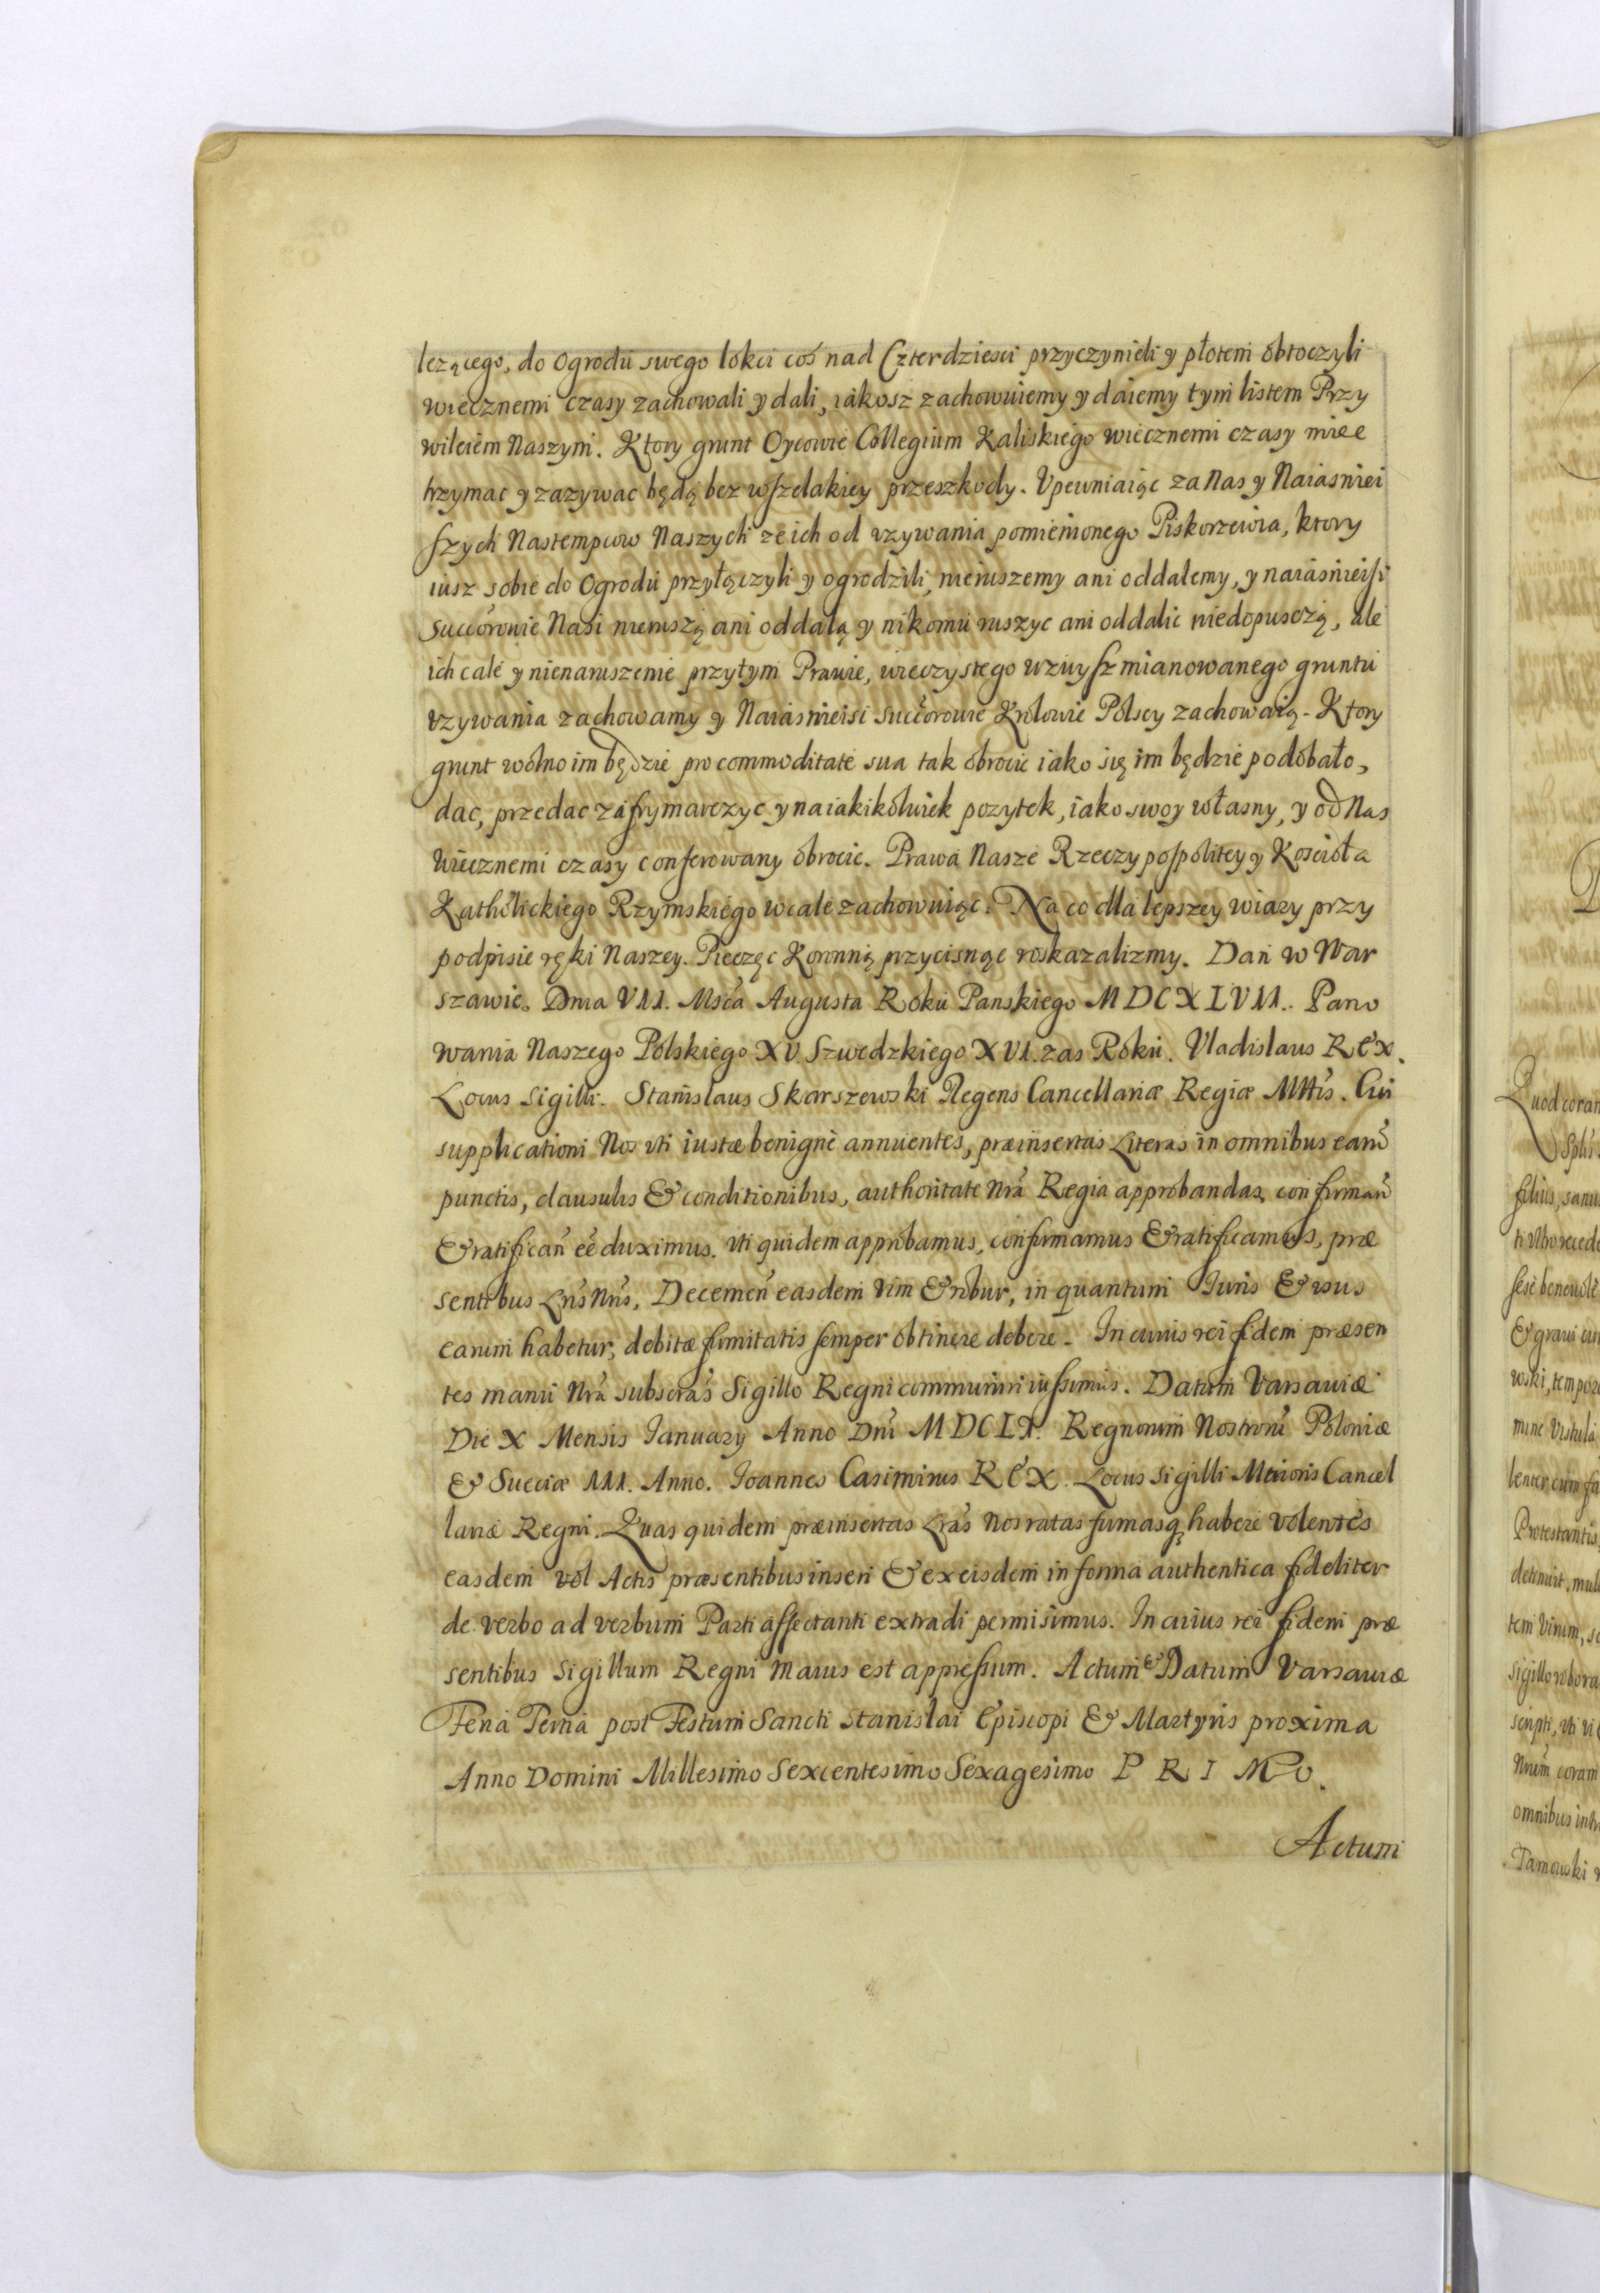 lezącego, do Ogrodu swego lokci coś nad Czterdziesci przyczynieli y płotem obtoczyli
wiecznemi czasy zachowali y dali, iakosz zachowuiemy y daiemy tym listem Przy
wileiem Naszym. Ktory grunt Oycowie Collegium Kaliskiego wiecznemi czasy miec
trzymac y zazywac będą bez wszelakiey przeszkody. Vpewniaiąc za Nas y Naiasniei
szych Nastempcow Naszych ze ich od vzywania pomienionego Piskorzewia, ktory
iusz sobie do Ogrodu przyłączyli y ogrodzili, nieruszemy ani oddalemy, y naiasnieisi
succorowie Nasi nieruszą ani oddalą y nikomu ruszyc ani oddalic niedopusczą, ale
ich cale y nienaruszenie przytym Prawie, wieczystego wzwysz mianowanego gruntu
vzywania zachowamy y Naiasnieisi succorowie Krolowie Polscy zachowaią. Ktory
grunt wolno im będzie pro commoditate sua tak obrocic iako się im będzie podobało,
dac, przedac zafrymarczyc y na iakikolwiek pozytek, iako swoy własny, y od Nas
wiecznemi czasy conferowany obrocic. Prawa Nasze Rzeczypospolitey y Koscioła
Katholickiego Rzymskiego wcale zachowuiąc. Na co dla lepszey wiary przy
podpisie ręki Naszey. Pieczęc Koronną przycisnąc roskazalizmy. Dan w War
szawie. Dnia VII. Msca Augusta Roku Panskiego MDCXLVII. Pano
wania Naszego Polskiego XV. Szwedzkiego XVI. zas Roku. Vladislaus REX.
Locus Sigilli. Stanislaus Skarszewski Regens Cancellariæ Regiæ Mttis. Cui
supplicationi Nos vti iustæ benignè annuentes, præinsertas Literas in omnibus earũ
punctis, clausulis & conditionibus, authoritate Nrã Regia approbandas, confirmañ
& ratificañ eẽ duximus. Vti quidem approbamus, confirmamus & ratificamus, præ
sentibus Lrĩs Nrĩs, Decerneñ easdem vim & robur, in quantum Iuris & vsus
earum habetur, debitæ firmitatis semper obtinere debere. In cuius rei fidem præsen
tes manu Nrã subscrãs Sigillo Regni communiri iussimus. Datum Varsaviæ
Die X Mensis Ianuarÿ Anno Dnĩ MDCLI. Regnorum Nostrorũ Poloniæ
& Sueciæ III. Anno. Ioannes Casimirus REX. Locus Sigilli Maioris Cancel
lariæ Regni. Quas quidem præinsertas Lrãs Nos ratas firmasq₃ habere volentes
easdem vol Actis præsentibus inseri & ex eisdem in forma authentica fideliter
de verbo ad verbum Parti affectanti extradi permisimus. In cuius rei fidem præ
sentibus Sigillum Regni Maius est appressum. Actum & Datum Varsaviæ
Feria Tertia post Festum Sancti Stanislai Episcopi & Martyris proxima
Anno Domini Millesimo Sexcentesimo Sexagesimo P R I M O.
Actum